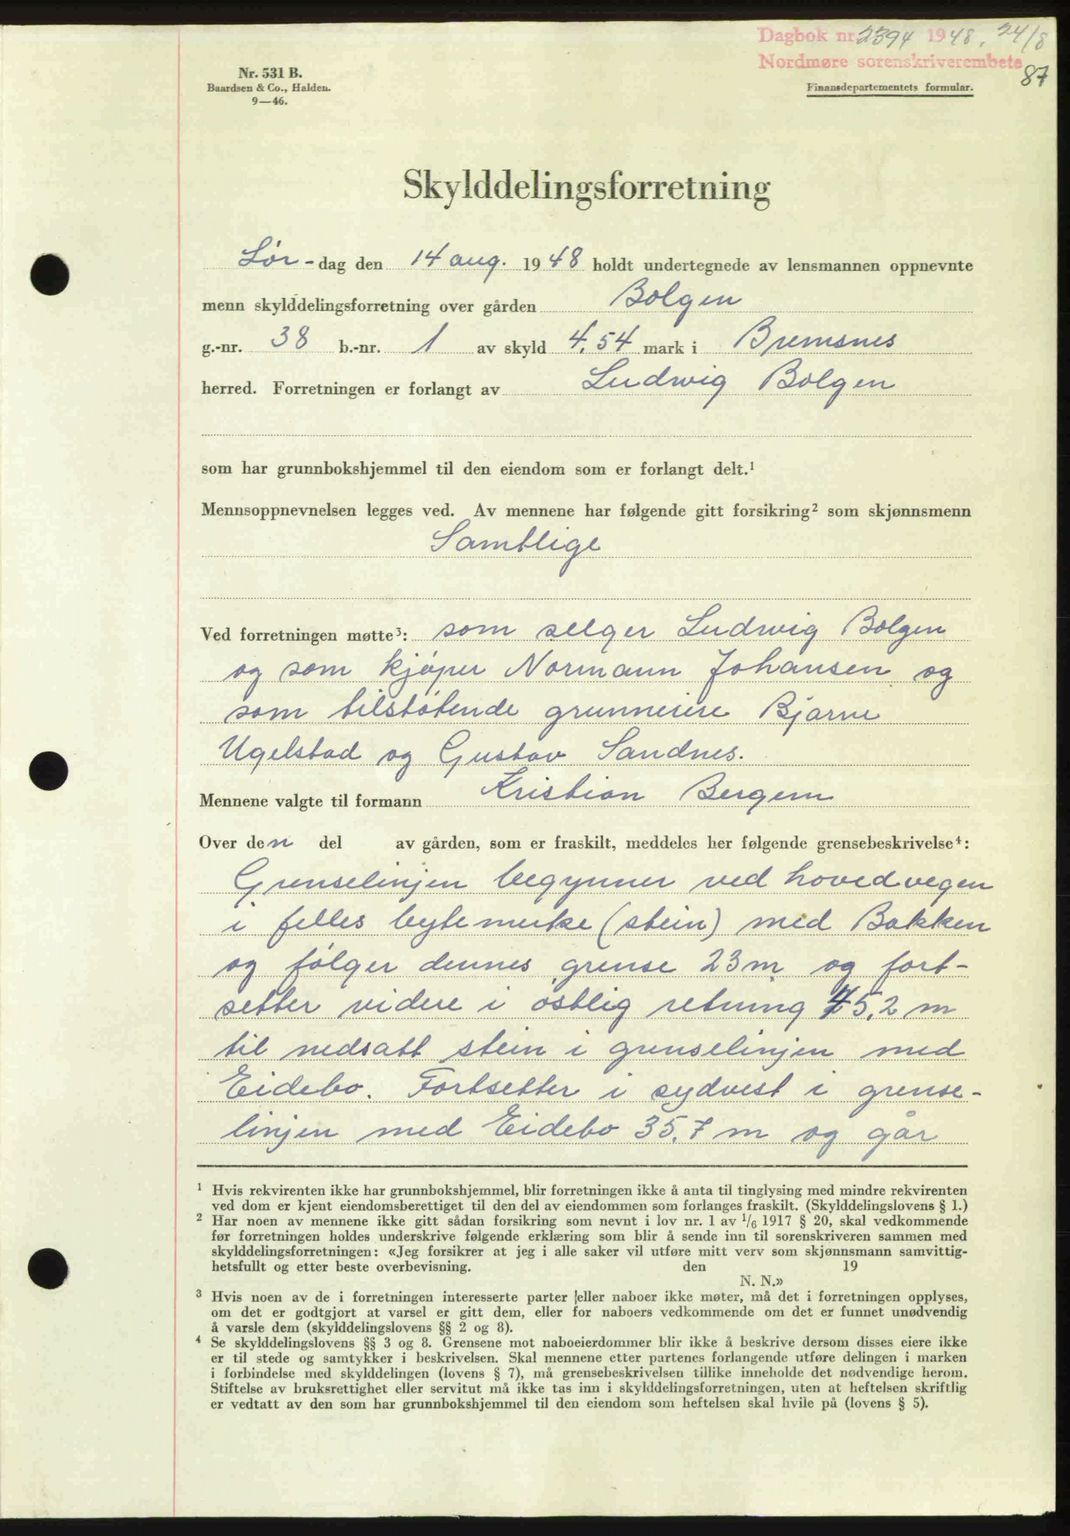 Dagbok nr. 2394 1948. 24/8
Nordmøre sorenskriverembete
87
Nr. 531 B.
Baardsen & Co., Halden.
9—46.
Finansdepartementets formular.
Skylddelingsforretning
Lør-dag den 14 aug. 1948 holdt undertegnede av lensmannen oppnevnte
menn skylddelingsforretning over gården Bolgen
g.-nr. 38 b.-nr. 1 av skyld 4,54 mark i Bremsnes
herred. Forretningen er forlangt av Ludwig Bolgen
som har grunnbokshjemmel til den eiendom som er forlangt delt.¹
Mennsoppnevnelsen legges ved. Av mennene har følgende gitt forsikring² som skjønnsmenn
Samtlige
Ved forretningen møtte³: som selger Ludwig Bolgen
og som kjøper Normann Johansen og
som tilstøtende grunneiere Bjarne
Ugelstad og Gustav Sandnes.
Mennene valgte til formann Kristian Bergem
Over den del av gården, som er fraskilt, meddeles her følgende grensebeskrivelse⁴:
Grenselinjen begynner ved hovedvegen
i felles bytemerke (stein) med Bakken
og følger dennes grense 23 m og fort-
setter videre i østlig retning 45,2 m
til nedsatt stein i grenselinjen med
Eidebo. Fortsetter i sydvest i grense-
linjen med Eidebo 35,7 m og går
¹ Hvis rekvirenten ikke har grunnbokshjemmel, blir forretningen ikke å anta til tinglysing med mindre rekvirenten
ved dom er kjent eiendomsberettiget til den del av eiendommen som forlanges fraskilt. (Skylddelingslovens § 1.)
² Har noen av mennene ikke gitt sådan forsikring som nevnt i lov nr. 1 av 1/6 1917 § 20, skal vedkommende
før forretningen holdes underskrive følgende erklæring som blir å sende inn til sorenskriveren sammen med
skylddelingsforretningen: «Jeg forsikrer at jeg i alle saker vil utføre mitt verv som skjønnsmann samvittig-
hetsfullt og etter beste overbevisning. den 19
N. N.»
³ Hvis noen av de i forretningen interesserte parter eller naboer ikke møter, må det i forretningen opplyses,
om det er godtgjort at varsel er gitt dem, eller for naboers vedkommende om det er funnet unødvendig
å varsle dem (skylddelingslovens §§ 2 og 8).
⁴ Se skylddelingslovens §§ 3 og 8. Grensene mot naboeierdommer blir ikke å beskrive dersom disses eiere ikke
er til stede og samtykker i beskrivelsen. Skal mennene etter partenes forlangende utføre delingen i marken
i forbindelse med skylddelingen (lovens § 7), må grensebeskrivelsen tillike inneholde det nødvendige herom.
Stiftelse av bruksrettighet eller servitut må ikke tas inn i skylddelingsforretningen, uten at heftelsen skriftlig
er vedtatt av den som har grunnbokshjemmel til den eiendom som heftelsen skal hvile på (lovens § 5).